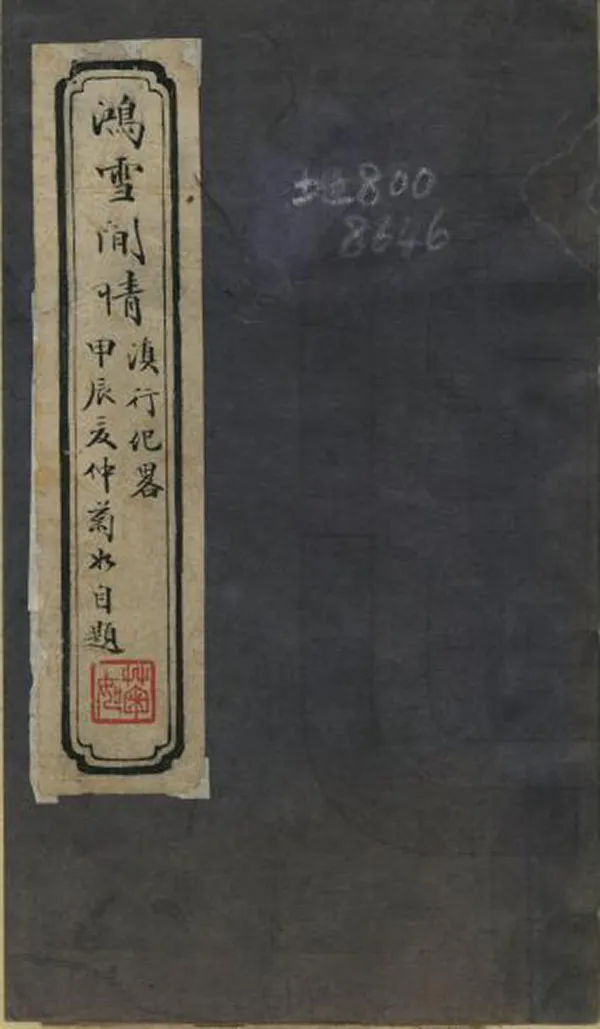 鴻雪閒情
滇行纪畧
甲辰夏仲菊如自題
地800
8646